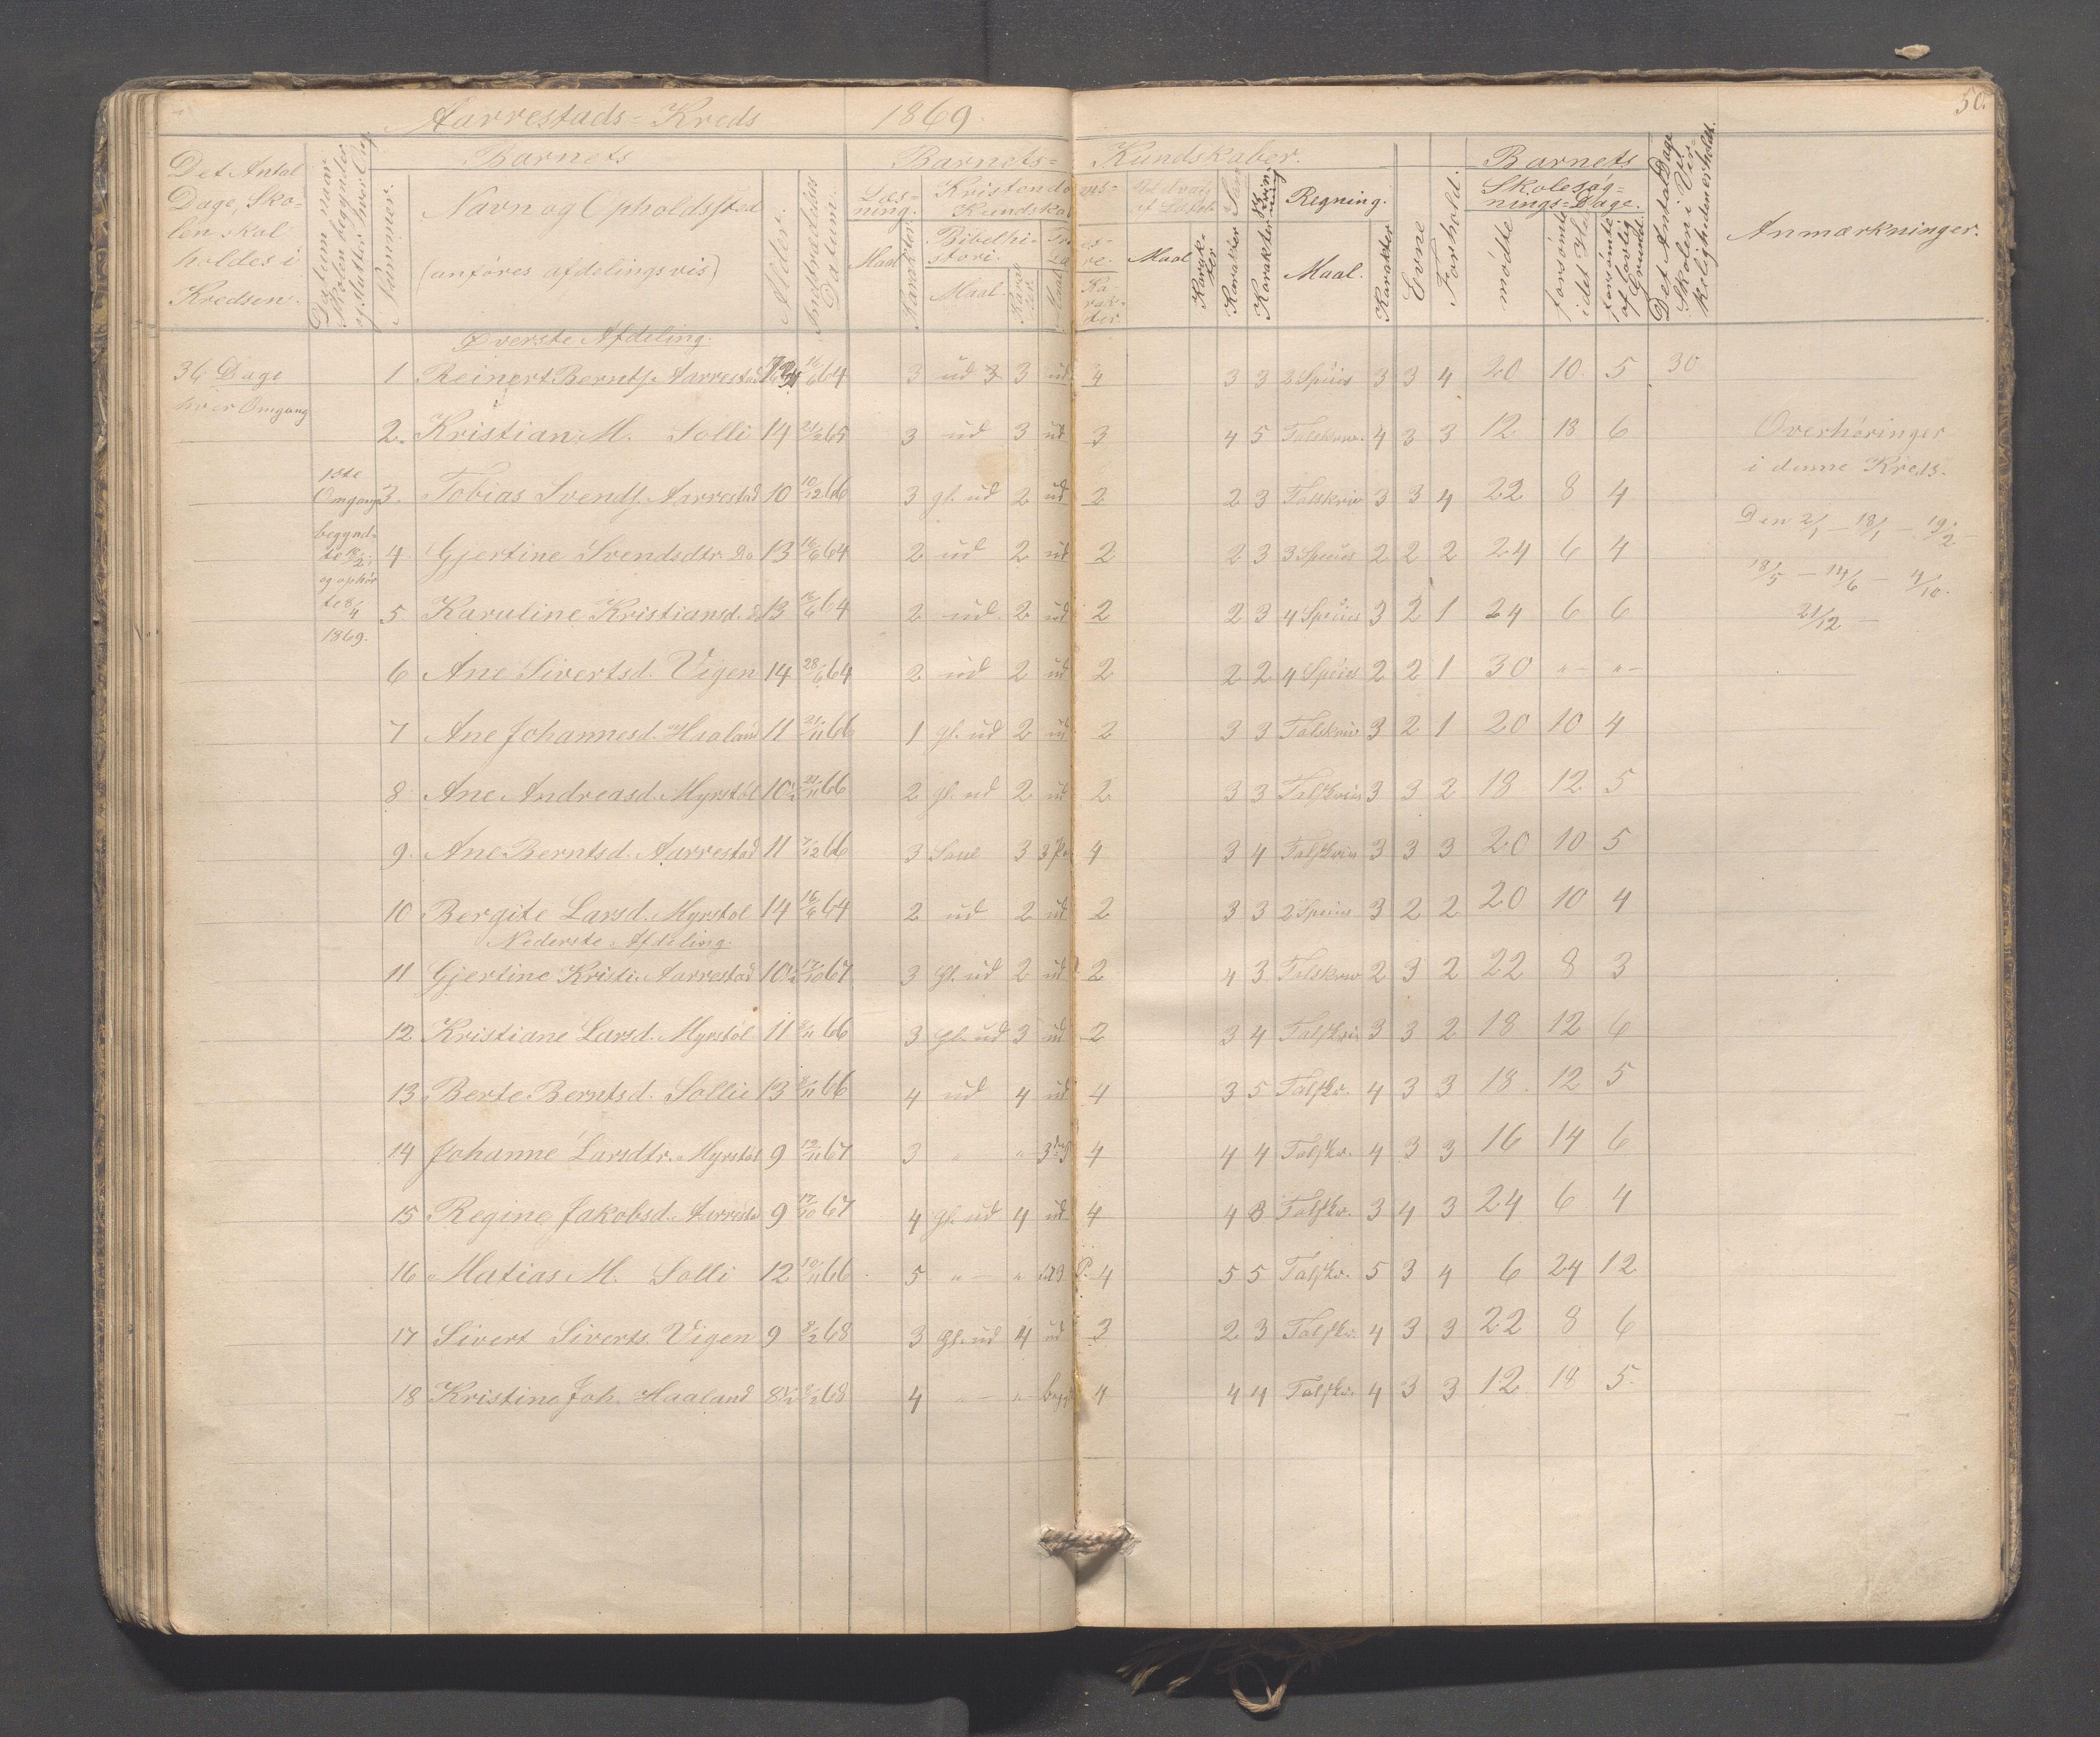 50.
Aarrestads=Kreds 1869.
Det Antal Dage, Skolen skal holdes i Kredsen.
Datum naar Skolen begynder og slutter hver Omg.
Nummer.
Barnets
Navn og Opholdssted
(anføres afdelingsvis)
Alder.
Indtrædelses Datum.
Barnets= Kundskaber.
Læs=ning.
Maal
Karakter
Kristendoms= Kundskab
Bibelhi=stori.
Maal.
Karakter
Troes=re.
Maal
Ka=rak=ter
Udvalg af Læseb.
Maal
Karak=ter
Sang
Karakter
Skrivning
Karakter
Regning.
Maal.
Karakter
Evne
Forhold.
Barnets
Skolesøg=nings=Dage.
mødte
forsømte i det Hele
forsømte af lovlig Grund
Det Antal Dage Skolen i Vir=keligheden er holdt.
Anmærkninger.
Øverste Afdeling.
36 Dage hver Omgang
1 Reinert Bernts. Aarrestad 16/6 64 3 ud 3 ud 4 3 3 2 Speties 3 3 4 20 10 5 30
2. Kristian M. Solli 14 21/2 65 3 ud 3 ud 3 4 5 Talskriv. 4 3 3 12 18 6
3. Tobias Svends. Aarrestad 10 10/12 66 3 gl. ud 2 ud 2 2 3 Talskriv 3 3 4 22 8 4
4 Gjertine Svendsdtr. Do 13 16/6 64 2 ud 2 ud 2 2 3 3 Speties 2 2 2 24 6 4
5 Karoline Kristiansd. Do 13 16/6 64 2 ud 2 ud 2 2 3 4 Speties 3 2 1 24 6 6
6 Ane Sivertsd. Vigen 14 28/6 64 2 ud 2 ud 2 2 2 4 Speties 2 2 1 30 "- "-
7 Ane Johannesd. Haaland 11 21/11 66 1 gl. ud 2 ud 2 3 3 Talskriv 3 2 1 20 10 4
8 Ane Andreasd. Myrstøl 10½ 21/11 66 2 gl. ud 2 ud 2 3 3 Talskriv 3 3 2 18 12 5
9. Ane Berntsd. Aarrestad 11 7/12 66 3 Saul 3 3 P. 4 3 4 Talskriv 3 3 3 20 10 5
10 Bergite Larsd. Myrstøl 14 16/6 64 2 ud 2 ud 2 3 3 2 Speties 3 2 2 20 10 4
Nederste Afdeling.
11 Gjertine Kristi. Aarrestad 10½ 17/10 67 3 gl. ud 2 ud 2 4 3 Talskriv 2 3 2 22 8 3
12 Kristiane Larsd. Myrstøl 11 8/11 66 3 gl. ud 3 ud 2 3 4 Talskriv 3 3 2 18 12 6
13 Berte Berntsd. Sollie 13 8/11 66 4 ud 4 ud 4 3 5 Talskr. 4 3 3 18 12 5
14 Johanne Larsdtr. Myrstøl 9 19/11 67 3 " " 4 4 4 Talskr. 4 3 3 16 14 6
15 Regine Jakobsd. Aarrestad 9 17/10 67 4 gl. ud 4 ud 4 4 3 Talskr. 3 4 3 24 6 4
16 Matias M. Solli 12 10/11 66 5 "- " P. 4 5 5 Talskr. 5 3 4 6 24 12
17 Sivert Siverts. Vigen 9 8/2 68 3 gl. ud 4 ud 3 2 3 Talskr. 4 3 3 22 8 6
18 Kristine Joh. Haaland 8½ 8/2 68 4 "- " beg 4 4 4 Talskr. 4 3 3 12 18 5.
1ste Omgang begynd=te 18/2 og ophør te 8/4 1869.
Overhøringer
i denne Kreds.
Den 2/1 - 18/1 - 19/2 -
18/5 - 14/6 - 4/10.
21/12 -